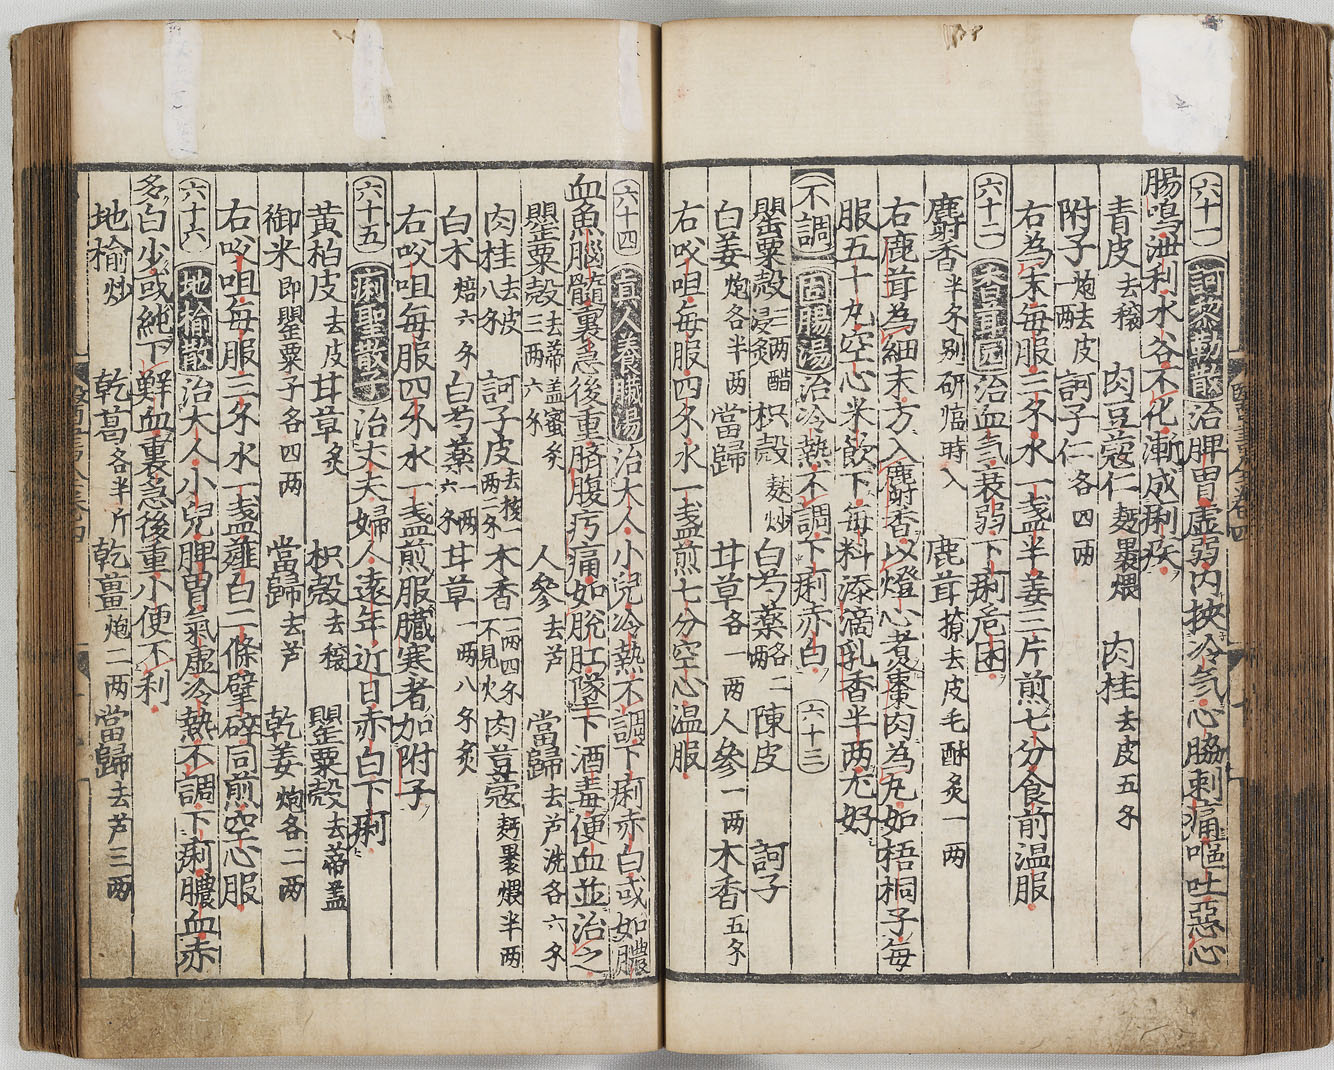 六十一 訶黎勒散 治脾胃虛弱內挾冷氣心脇刺痛嘔吐惡心
腸鳴泄利水谷不化漸成痢疾
青皮去穰 肉豆蔻仁麪裹煨 肉桂去皮五錢
附子炮去皮一兩 訶子仁各四兩
右為末每服三錢水一盞半姜三片煎七分食前溫服
六十二 治血氣衰弱下痢危困
麝香半錢别研臨時入 鹿茸撩去皮毛酥炙一兩
右鹿茸為細末方入麝香以燈心煮棗肉為丸如梧桐子每
服五十丸空心米飲下每料添滴乳香半兩尤好
不調 固腸湯 治冷熱不調下痢赤白 六十三
罌粟殼三兩醋浸炙 枳殼麩炒 白芍藥各二兩 陳皮 訶子
白姜炮各半兩 當歸 甘草各一兩 人參一兩 木香五錢
右㕮咀每服四錢水一盞煎七分空心溫服
六十四 真人養臟湯 治大人小兒冷熱不調下痢赤白或如膿
血魚腦髓裏急後重臍腹㽲痛如脫肛墜下酒毒便血並治之
罌粟殼去蒂盖蜜炙三兩六錢 人參去芦 當歸去芦洗各六錢
肉桂去皮八錢 訶子皮去核兩二錢 木香一兩四錢不見火 肉荳蔻麪裹煨半兩
白术焙六錢 白芍藥一兩六錢 甘草一兩八錢炙
右㕮咀每服四錢水一盞煎服臟寒者加附子
六十五 痢聖散子 治丈夫婦人遠年近日赤白下痢
黃柏皮去皮 甘草炙 枳殼去穰 罌粟殼去蒂盖
御米即罌粟子各四兩 當歸去芦 乾姜炮各二兩
右㕮咀每服三錢水一盞薤白二條擘碎同煎空心服
六十六 地榆散 治大人小兒脾胃氣虛冷熱不調下痢膿血赤
多白少或純下鮮血裏急後重小便不利
地榆炒 乾葛各半斤 乾薑炮二兩 當歸去芦三兩